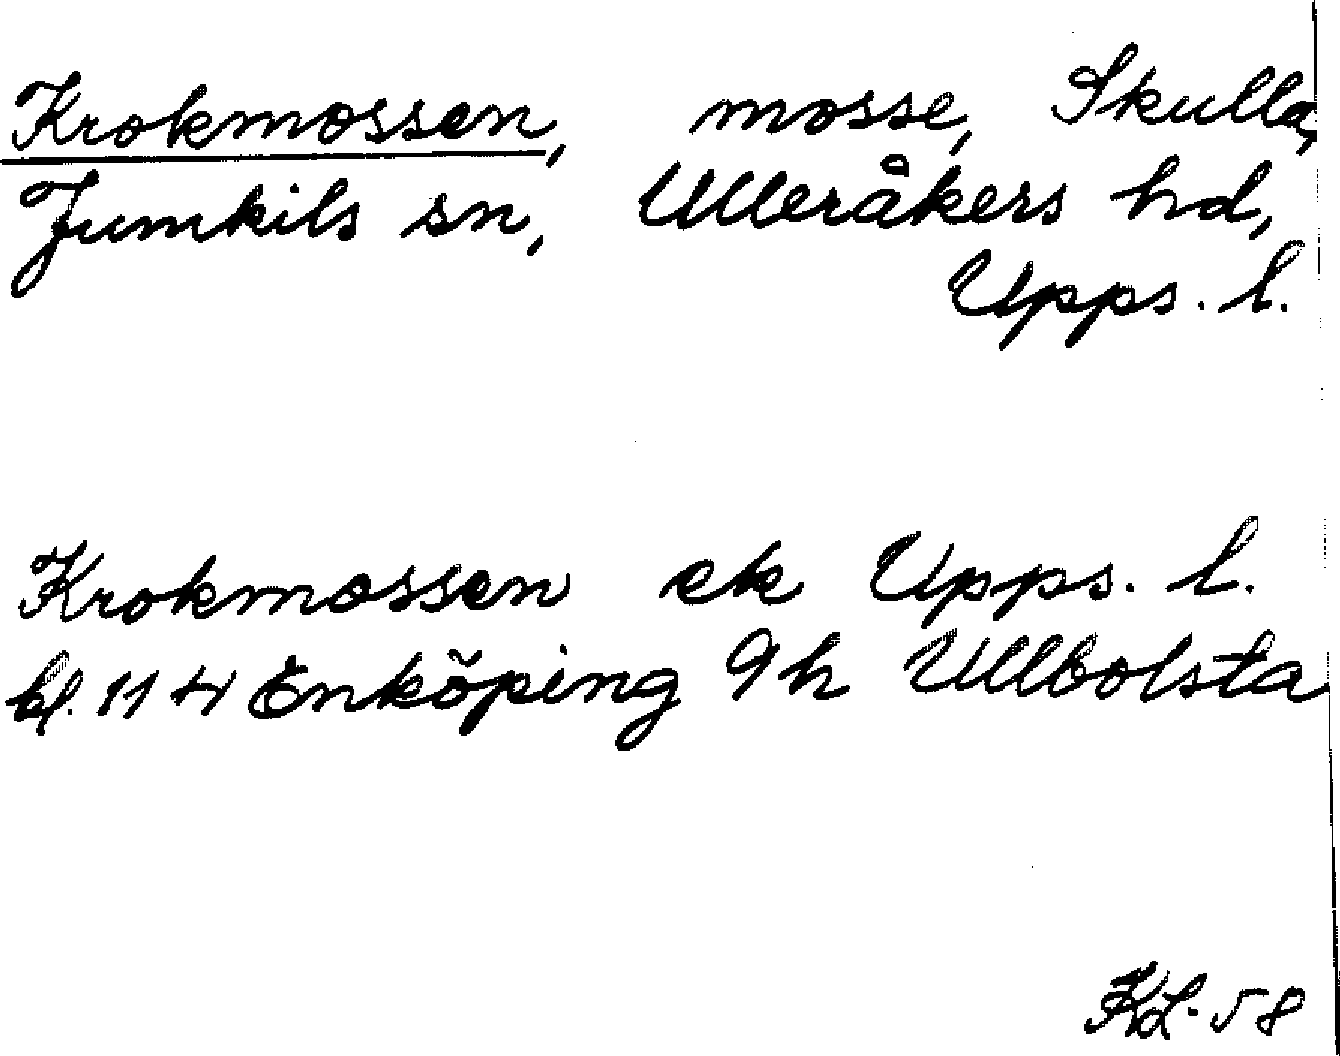 Krokmossen, mosse, Skulla,
Jumkils sn, Ulleråkers hd,
Upps. l.
Krokmossen ek Upps. l.
bl. 114 Enköping 9h Ullbolsta
KL-58